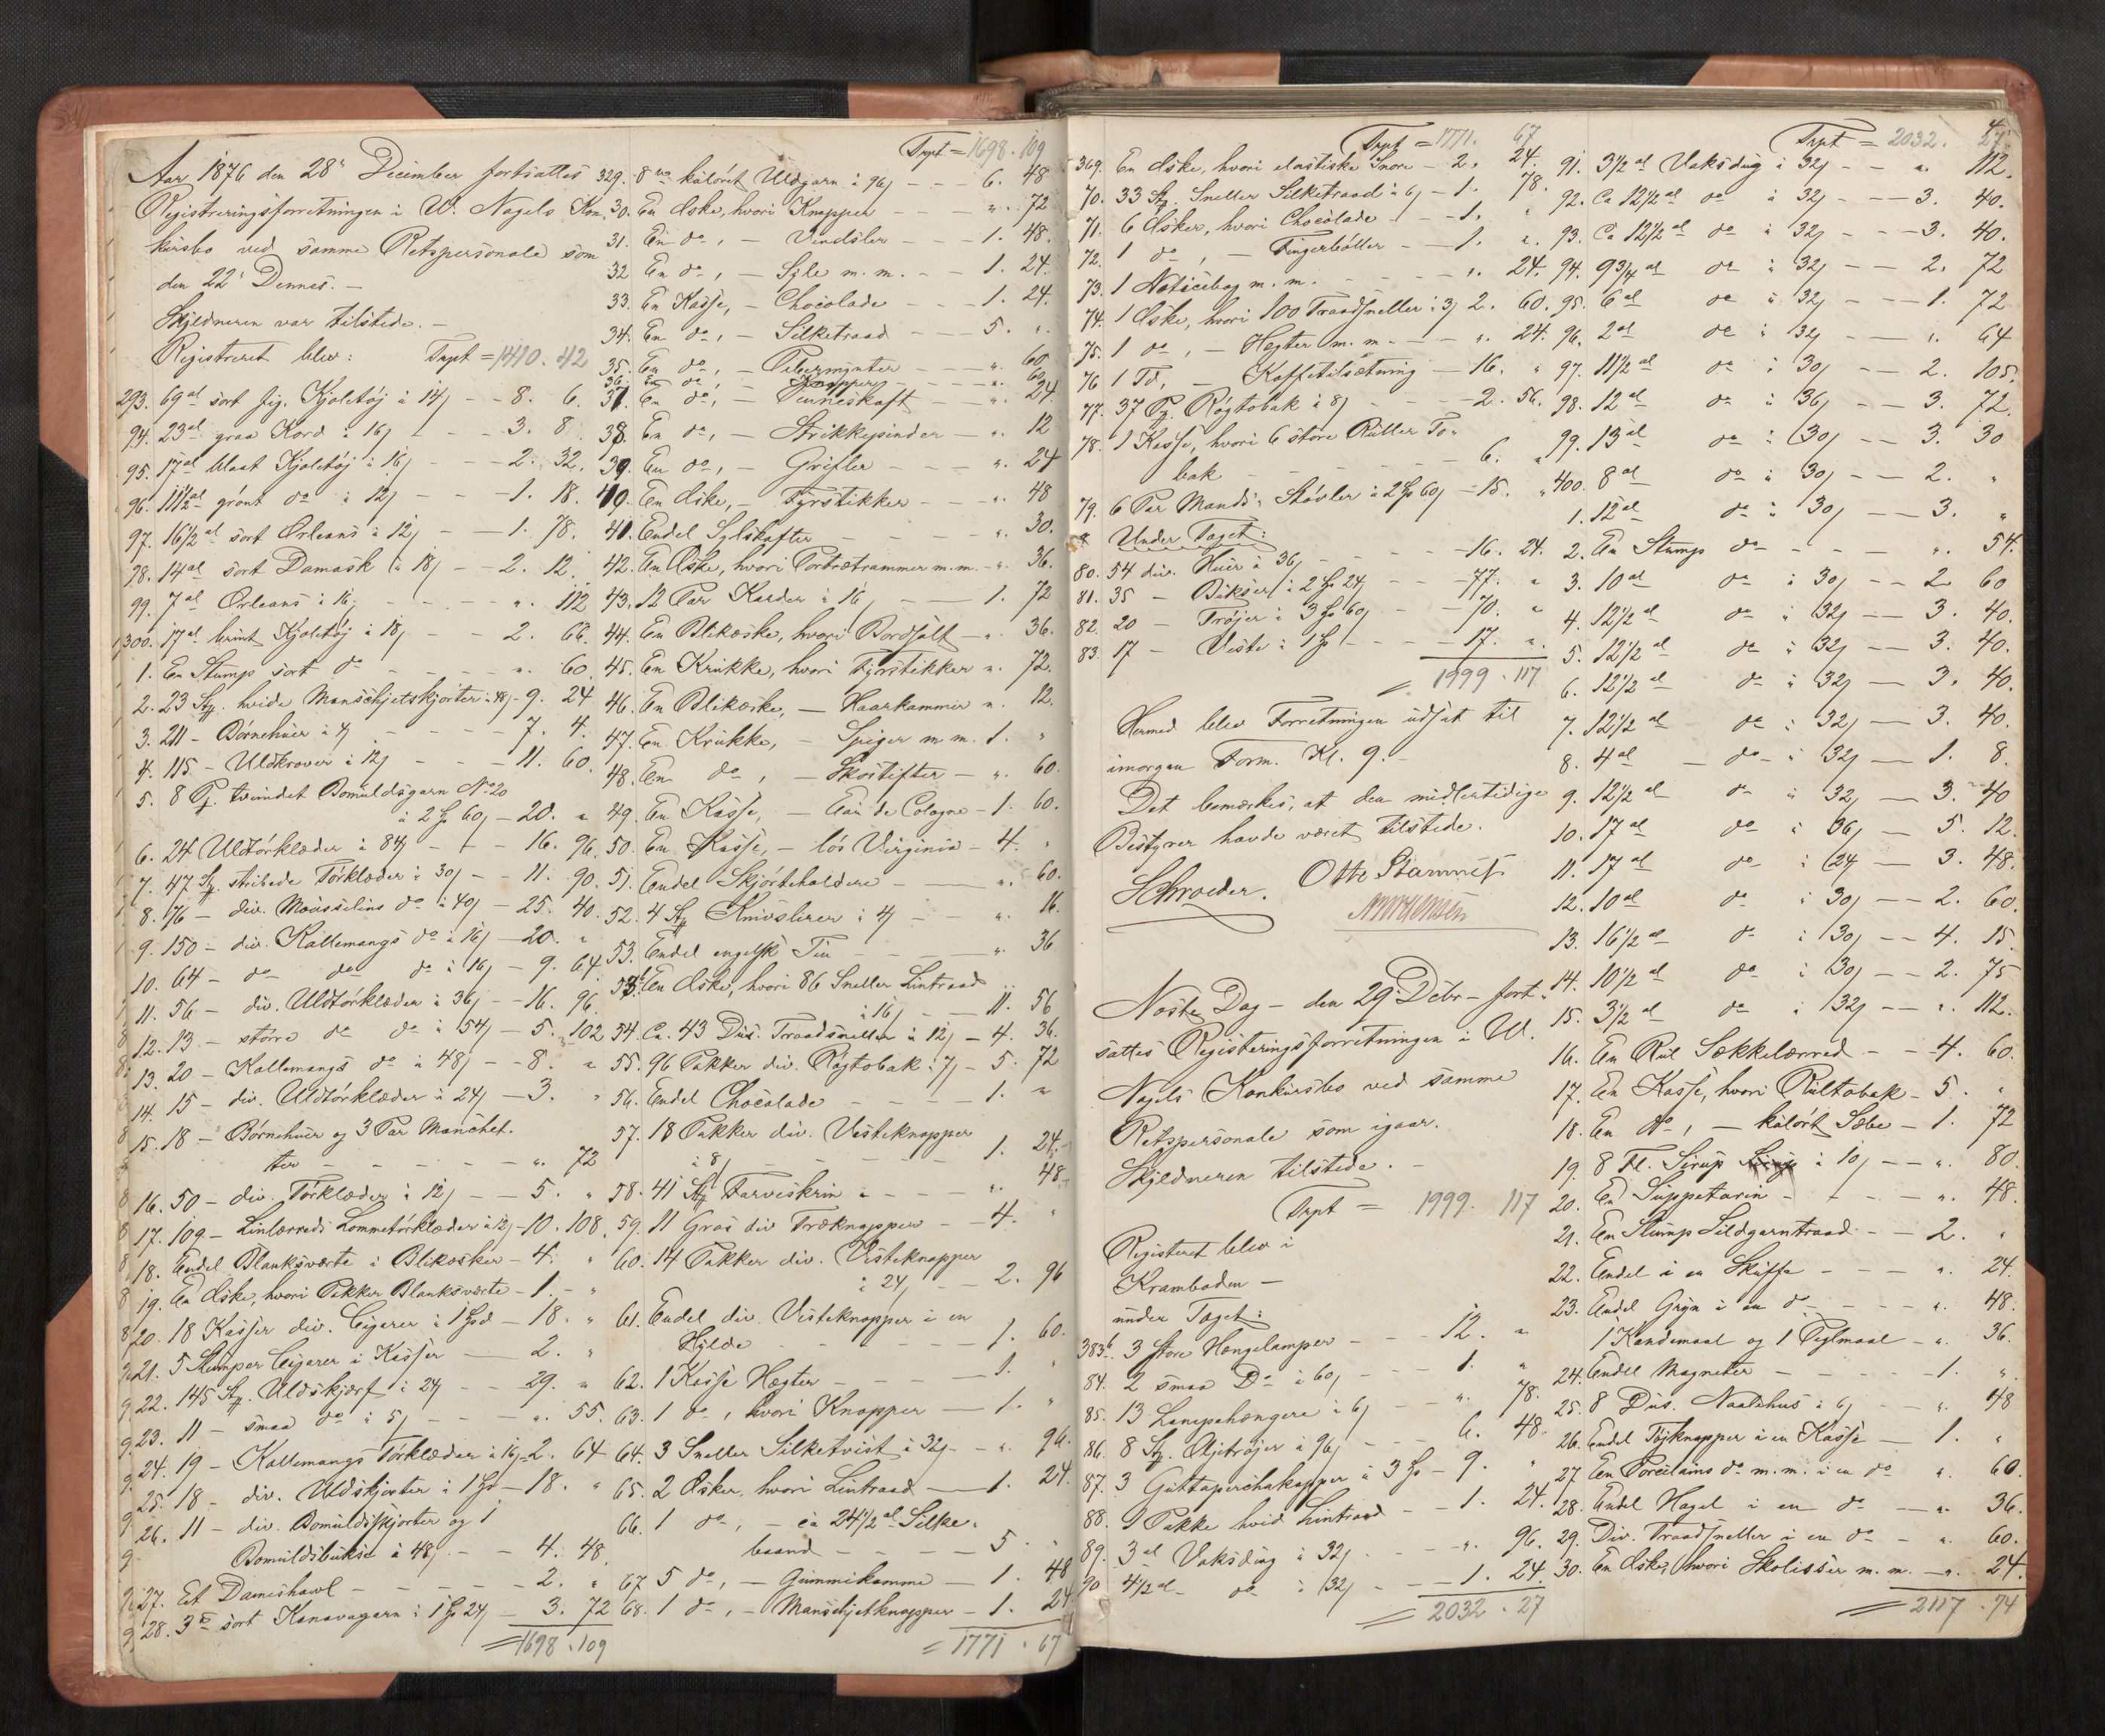 Aar 1876 den 28' December fortsattes
Registreringsforretningen i W. Nagels Kon-
kursbo ved samme Retspersonale som
den 22' Dennes. -
Skyldneren var tilstede. -
Registreret blev: Trpt = 1410. 42
293. 69 al sort fig. Kjoletøj à 14 ß - - 8. 6.
94. 23 al graa Kord à 16 ß - - 3. 8.
95. 17 al blaat Kjoletøj à 16 ß - - 2. 32.
96. 11 1/2 al grönt do à 12 ß - - 1. 18.
97. 16 1/2 al sort Orleans à 12 ß - - 1. 78.
98. 14 al sort Damask à 18 ß - - 2. 12.
99. 7 al Orleans à 16 ß - - ". 112
300. 17 al brunt Kjoletøj à 18 ß - - 2. 66.
1. En Stump sort do - - ". 60
2. 23 St. hvide Manschjetskjorter à 48 ß - 9. 24
3. 211 - Börnehuer à 4 ß - - 7. 4.
4. 115 - Uldkraver à 12 ß - - 11. 60.
5. 8 P. tvundet Bomuldsgarn No 20
à 2 Spd 60 ß - 20. "
6. 24 Uldtörklæder à 84 ß - - 16. 96.
7. 47 St. stribede Törklæder à 30 ß - - 11. 90.
8. 176 - div. Mousselins do à 40 ß - 25. 40.
9. 150 - div. Kallemangs do à 16 ß - 20. "
10. 64 - do do do à 16 ß - 9. 64
11. 56 - div. Uldtörklæder à 36 ß - - 16. 96.
12. 13 - större do do à 54 ß - 5. 102
13. 20 - Kallemangs do à 48 ß - 8. "
14. 15 - div. Uldtörklæder à 24 ß - 3. "
15. 18 - Börnehuer og 3 Par Manchet-
ter - - - ". 72
16. 50 - div. Törklæder à 12 ß - - 5. "
17. 109 - Linlærreds Lommetörklæder à 12 ß - 10. 108.
18. Endel Blanksværte i Blikæsker - 4. "
19. En Æske, hvori Pakker Blanksværte - 1. "
20. 18 Kasser div. Cigarer à 1 Spd - 18. "
21. 5 Stumper Cigarer i Kasser - 2. "
22. 145 St. Uldskjærf à 24 ß - - 29. "
23. 11 - smaa do à 5 ß - - ". 55.
24. 19 - Kallemangs Törklæder à 16 ß - 2. 64
25. 18 - div. Uldskjorter à 1 Spd - 18. "
26. 11 - div. Bomuldsskjorter og 1
Bomuldsbukse à 48 ß - - 4. 48.
27. Et Dameshawl - - 2. "
28. 3 sort Kanavagarn à 1 Spd 24 ß - 3. 72
= 1698. 109
Trpt = 1698. 109
329. 8 kulört Uldgarn à 96 ß - - 6. 48
30. En Æske, hvori Knapper - - ". 72
31. En do, - Vindsler - - 1. 48.
32 En do, - Syle m. m. - - 1. 24.
33. En Kasse, - Chocolade - - 1. 24.
34. En do, - Silketraad - - 5. "
35. En do, - Pebermynter - - ". 60
36. En do, - Knapper - - ". 60
37. En do, - Penneskaft - - ". 24.
38. En do, - Strikkepinder - ". 12
39. En do, - Grifler - - ". 24
40. En Æske, - Fyrstikker - - ". 48
41. Endel Sylskafter - - ". 30.
42. En Æske, hvori Portrætrammer m.m. - ". 36.
43. 12 Par Karder à 16 ß - - 1. 72
44. En Blikæske, hvori Bordsalt - ". 36.
45. En Krukke, hvori Fyrstikker ". 72.
46. En Blikæske, - Haarkammer ". 12.
47. En Krukke, - Spiger m m. 1. "
48. En do, - Skostifter - ". 60.
49. En Kasse, - Eau de Cologne - 1. 60.
50. En Kasse, - lös Virginia - 4. "
51. Endel Skjörteholdere - ". 60.
52. 4 St Knivslirer à 4 ß - - ". 16.
53. Endel engelsk Tin - - ". 36
53b. En Æske, hvori 86 Sneller Lintraad
à 16 ß - - 11. 56
54. Ca. 43 Dus. Traadsneller à 12 ß - 4. 36.
55. 96 Pakker div. Røgtobak à 7 ß - 5. 72
56. Endel Chocolade - - - 1. "
57. 18 Pakker div. Vesteknapper
à 8 ß - - - 1. 24.
58. 41 St Farveskrin - - ". 48.
59. 11 Gros div Træknapper - - 4. "
60. 14 Pakker div. Vesteknapper
à 24 ß - - 2. 96
61. Endel div. Vesteknapper i en
Hylde - - - 1. 60.
62. 1 Kasse Hægter - - - 1. "
63. 1 do, hvori Knapper - 1. "
64. 3 Sneller Silketvist à 32 ß - ". 96.
65. 2 Æsker, hvori Lintraad - 1. 24.
66. 1 do, - ca 24 1/2 al Silke-
baand - - - 5. "
67 5 do, - Gummikamme - 1. 48
68. 1 do, - Manschjetknapper - 1. 24
= 1771. 67
Trpt = 1771. 67
369. En Æske, hvori elastiske Snore - 2. 24.
70. 33 St. Sneller Silketraad à 6 ß - 1. 78.
71. 6 Æsker, hvori Chocolade - - 1. "
72. 1 do, - Fingerböller - - 1. "
73. 1 Noticebog m. m. - - ". 24.
74. 1 Æske, hvori 100 Traadsneller à 3 ß 2. 60.
75. 1 do, - Hegter m. m. - - ". 24.
76 1 Td, - Kaffetilsætning - 16. "
77. 37 P. Røgtobak à 8 ß - - 2. 56.
78. 1 Kasse, hvori 6 store Ruller To-
bak - - - 6. "
79. 6 Par Mands-Stövler à 2 Spd 60 ß - 15. "
Under Taget:
80. 54 div. Huer à 36 ß - - 16. 24.
81. 35 - Bukser à 2 Spd 24 ß - - 77. "
82. 20 - Tröjer à 3 Spd 60 ß - - 70. "
83. 17 - Veste à 1 Spd - - 17. "
= 1999. 117
Hermed blev Forretningen udsat til
imorgen Form. Kl. 9. -
Det bemærkes, at den midlertidige
Bestyrer havde været tilstede.
Schroeder. Otto Stamnes
Næste Dag - den 29' Debr - fort-
sattes Registeringsforretningen i W.
Nagels Konkursbo ved samme
Retspersonale som igaar.
Skjldneren tilstede. -
Trpt = 1999. 117
Registeret blev i
Kramboden -
under Taget:
383b. 3 store Hængelamper - - 12. "
84. 2 smaa Do à 60 ß - 1. "
85. 13 Lampehængere à 6 ß - - ". 78.
86. 8 St. Oljetröjer à 96 ß - - 6. 48.
87. 3 Guttaperchakapper à 3 Spd - 9. "
88. 1 Pakke hvid Lintraad - - 1. 24.
89. 3 al Voksdug à 32 ß - - ". 96.
90 4 1/2 al - do à 32 ß - - 1. 24.
= 2032. 27
Trpt = 2032. 27.
91. 3 1/2 al Voksdug à 32 ß - - ". 112.
92. Ca 12 1/2 al do à 32 ß - - 3. 40.
93. Ca 12 1/2 al do à 32 ß - - 3. 40.
94. 9 3/4 al do à 32 ß - - 2. 72
95. 6 al do à 32 ß - - 1. 72
96. 2 al do à 32 ß - - ". 64
97. 11 1/2 al do à 30 ß - - 2. 105.
98. 12 al do à 36 ß - - 3. 72.
99. 13 al do à 30 ß - - 3. 30
400. 8 al do à 30 ß - - 2. "
1. 12 al do à 30 ß - - 3. "
2. En Stump do - - - ". 54.
3. 10 al do à 30 ß - - 2. 60
4. 12 1/2 al do à 32 ß - - 3. 40.
5. 12 1/2 al do à 32 ß - - 3. 40.
6. 12 1/2 al do à 32 ß - - 3. 40.
7. 12 1/2 al do à 32 ß - - 3. 40.
8. 4 al - do - à 32 ß - 1. 8.
9. 12 1/2 al do à 32 ß - 3. 40
10. 17 al do à 36 ß - 5. 12.
11. 17 al do à 24 - 3. 48.
12. 10 al do à 30 ß - - 2. 60.
13. 16 1/2 al do à 30 ß - - 4. 15.
14. 10 1/2 al do à 30 ß - - 2. 75
15. 3 1/2 al do à 32 ß - - ". 112.
16. En Rul Sækkelærred - - 4. 60.
17. En Kasse, hvori Rultobak - 5. "
18. En do, - kulört Sæbe - 1. 72
19. 8 Fl. Sirup à 10 ß - - ". 80.
20. En Suppeterin - - - ". 48.
21. En Stump Sildgarntraad - - 2. "
22. Endel i en Skuffe - - - ". 24.
23. Endel Gryn i en do - - - ". 48.
1 Kandemaal og 1 Pglmaal - ". 36.
24. Endel Magneter - - - 1. "
25. 8 Dus. Naalehus à 6 ß - - ". 48
26. Endel Töjknapper i en Kasse - 1. "
27. En Porcelains do m. m. i en do ". 60.
28. Endel Hagel i en do - ". 36.
29. Div. Traadsneller i en do - ". 60.
30. En Æske, hvori Skolisser m. m. - ". 24.
= 2117. 74